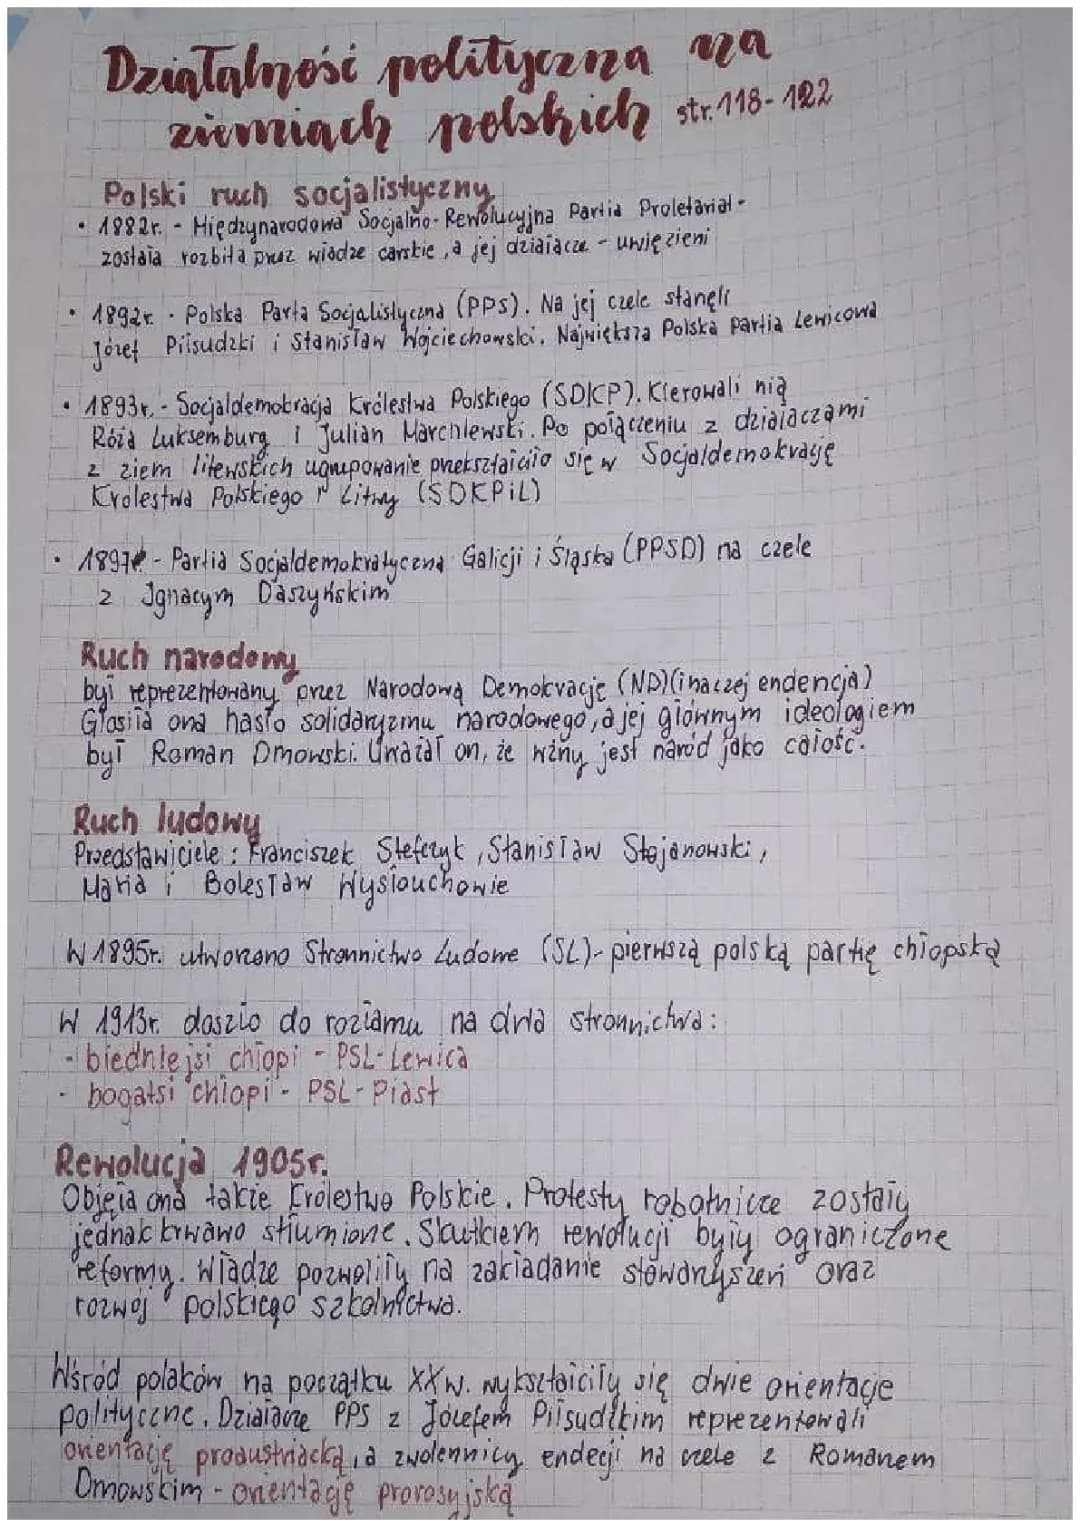 Działalność polityczna na
ziemiach polskich str. 118-122
Polski ruch socjalistyczny
• 1882r. - Międzynarodowa Socjalno-Rewolucyjna Partia Proletariat -
została rozbita przez władze carskie, a jej działacze - uwięzieni
• 1892r. - Polska Parta Socjalistyczna (PPS). Na jej czele stanęli
Józef Piłsudzki i Stanisław Wojciechowski. Największa Polska partia Lewicowa
• 1893r. - Socjaldemokracja Królestwa Polskiego (SDKP). Kierowali nią
Róża Luksemburg i Julian Marchlewski. Po połączeniu z działaczami
z ziem litewskich ugrupowanie przekształciło się w Socjaldemokrację
Królestwa Polskiego i Litwy (SDKPiL)
• 1897r - Partia Socjaldemokratyczna Galicji i Śląska (PPSD) na czele
z Ignacym Daszyńskim
Ruch narodowy
był reprezentowany przez Narodową Demokrację (ND)(inaczej endencja)
Głosiła ona hasło solidaryzmu narodowego, a jej głównym ideologiem
był Roman Dmowski. Uważał on, że ważny jest naród jako całość.
Ruch ludowy
Przedstawiciele: Franciszek Stefczyk, Stanisław Stojanowski,
Maria i Bolesław Wysłouchowie
W 1895r. utworzono Stronnictwo Ludowe (SL)- pierwszą polską partię chłopską
W 1913r. doszło do rozłamu na dwa stronnictwa:
- biedniejsi chłopi - PSL-Lewica
- bogatsi chłopi - PSL-Piast
Rewolucja 1905r.
Objęła ona także Królestwo Polskie. Protesty robotnicze zostały
jednak krwawo stłumione. Skutkiem rewolucji były ograniczone
reformy. Władze pozwoliły na zakładanie stowarzyszeń oraz
rozwój polskiego szkolnictwa.
Wśród polaków na początku XXw. wykształciły się dwie orientacje
polityczne. Działacze PPS z Józefem Piłsudzkim reprezentowali
orientację proaustriacką, a zwolennicy endecji na czele z Romanem
Dmowskim - orientację prorosyjską